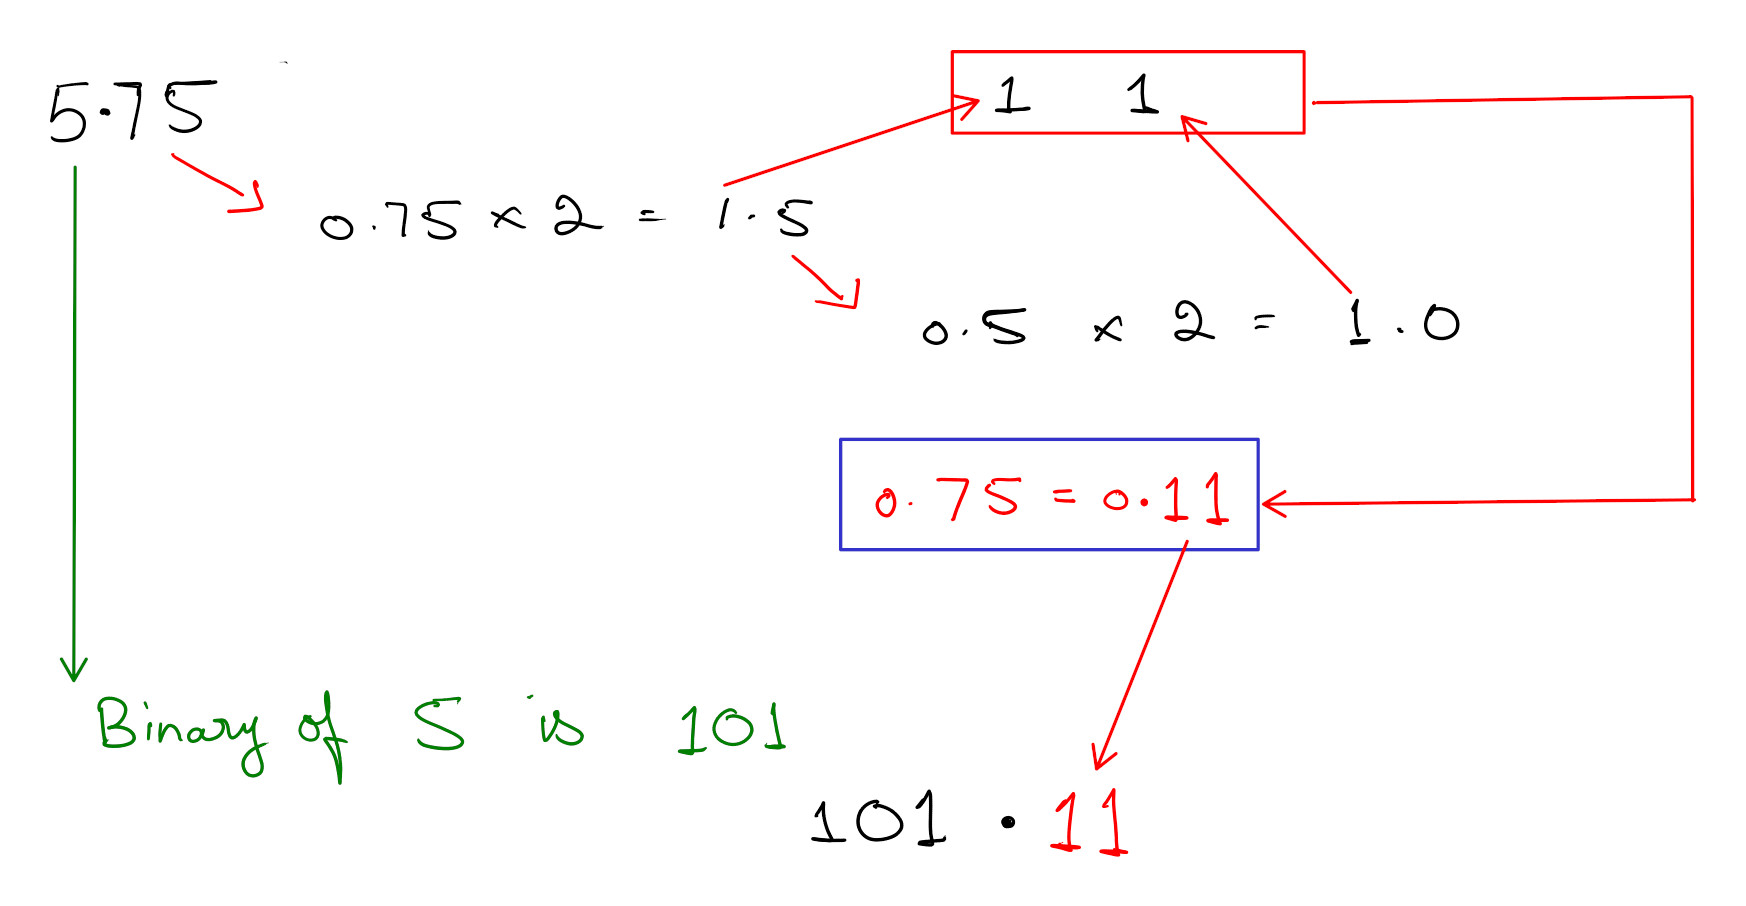 5.75
1 1
0.75 × 2 = 1.5
0.5 × 2 = 1.0
0.75 = 0.11
Binary of 5 is 101
101 . 11